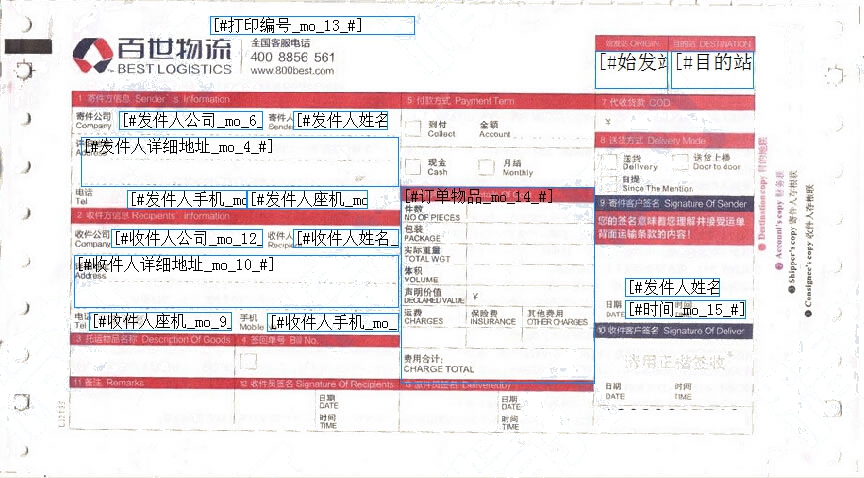 [#打印编号_mo_13_#]
百世物流
BEST LOGISTICS
全国客服电话
400 8856 561
www.800best.com
始发站 ORIGIN
目的站 DESTINATION
[#始发站
[#目的站
1 寄件方信息 Sender's Information
寄件公司
Company
[#发件人公司_mo_6_
寄件人
Sende
[#发件人姓名
[#发件人详细地址_mo_4_#]
Address
电话
Tel
[#发件人手机_mo
[#发件人座机_mo
2 收件方信息 Recipients' Information
收件公司
Company
[#收件人公司_mo_12_
收件人
Recipie
[#收件人姓名_
[#收件人详细地址_mo_10_#]
Address
电话
Tel
[#收件人座机_mo_9_
手机
Moble
[#收件人手机_mo_
3 托运物品名称 Description Of Goods
4 签回单号 Bill No.
5 付款方式 Payment Term
到付
Collect
金额
Account
现金
Cash
月结
Monthly
[#订单物品_mo_14_#]
件数
NO OF PIECES
包装
PACKAGE
实际重量
TOTAL WGT
体积
VOLUME
声明价值
DECLARED VALUE
¥
运费
CHARGES
保险费
INSURANCE
其他费用
OTHER CHARGES
费用合计:
CHARGE TOTAL
7 代收货款 COD
¥
8 送货方式 Delivery Mode
送货
Delivery
送货上楼
Door to door
自提
Since The Mention
9 寄件客户签名 Signature Of Sender
您的签名意味着您理解并接受运单
背面运输条款的内容!
[#发件人姓名
日期
DATE
时间
[#时间_mo_15_#]
10 收件客户签名 Signature Of Deliver
请用正楷签收
日期
DATE
时间
TIME
11 备注 Remarks
12 收件员签名 Signature Of Recipients
日期
DATE
时间
TIME
日期
DATE
时间
TIME
Destination copy
Account's copy 财务联
Shipper's copy 寄件人存根联
Consignee's copy 收件人存根联